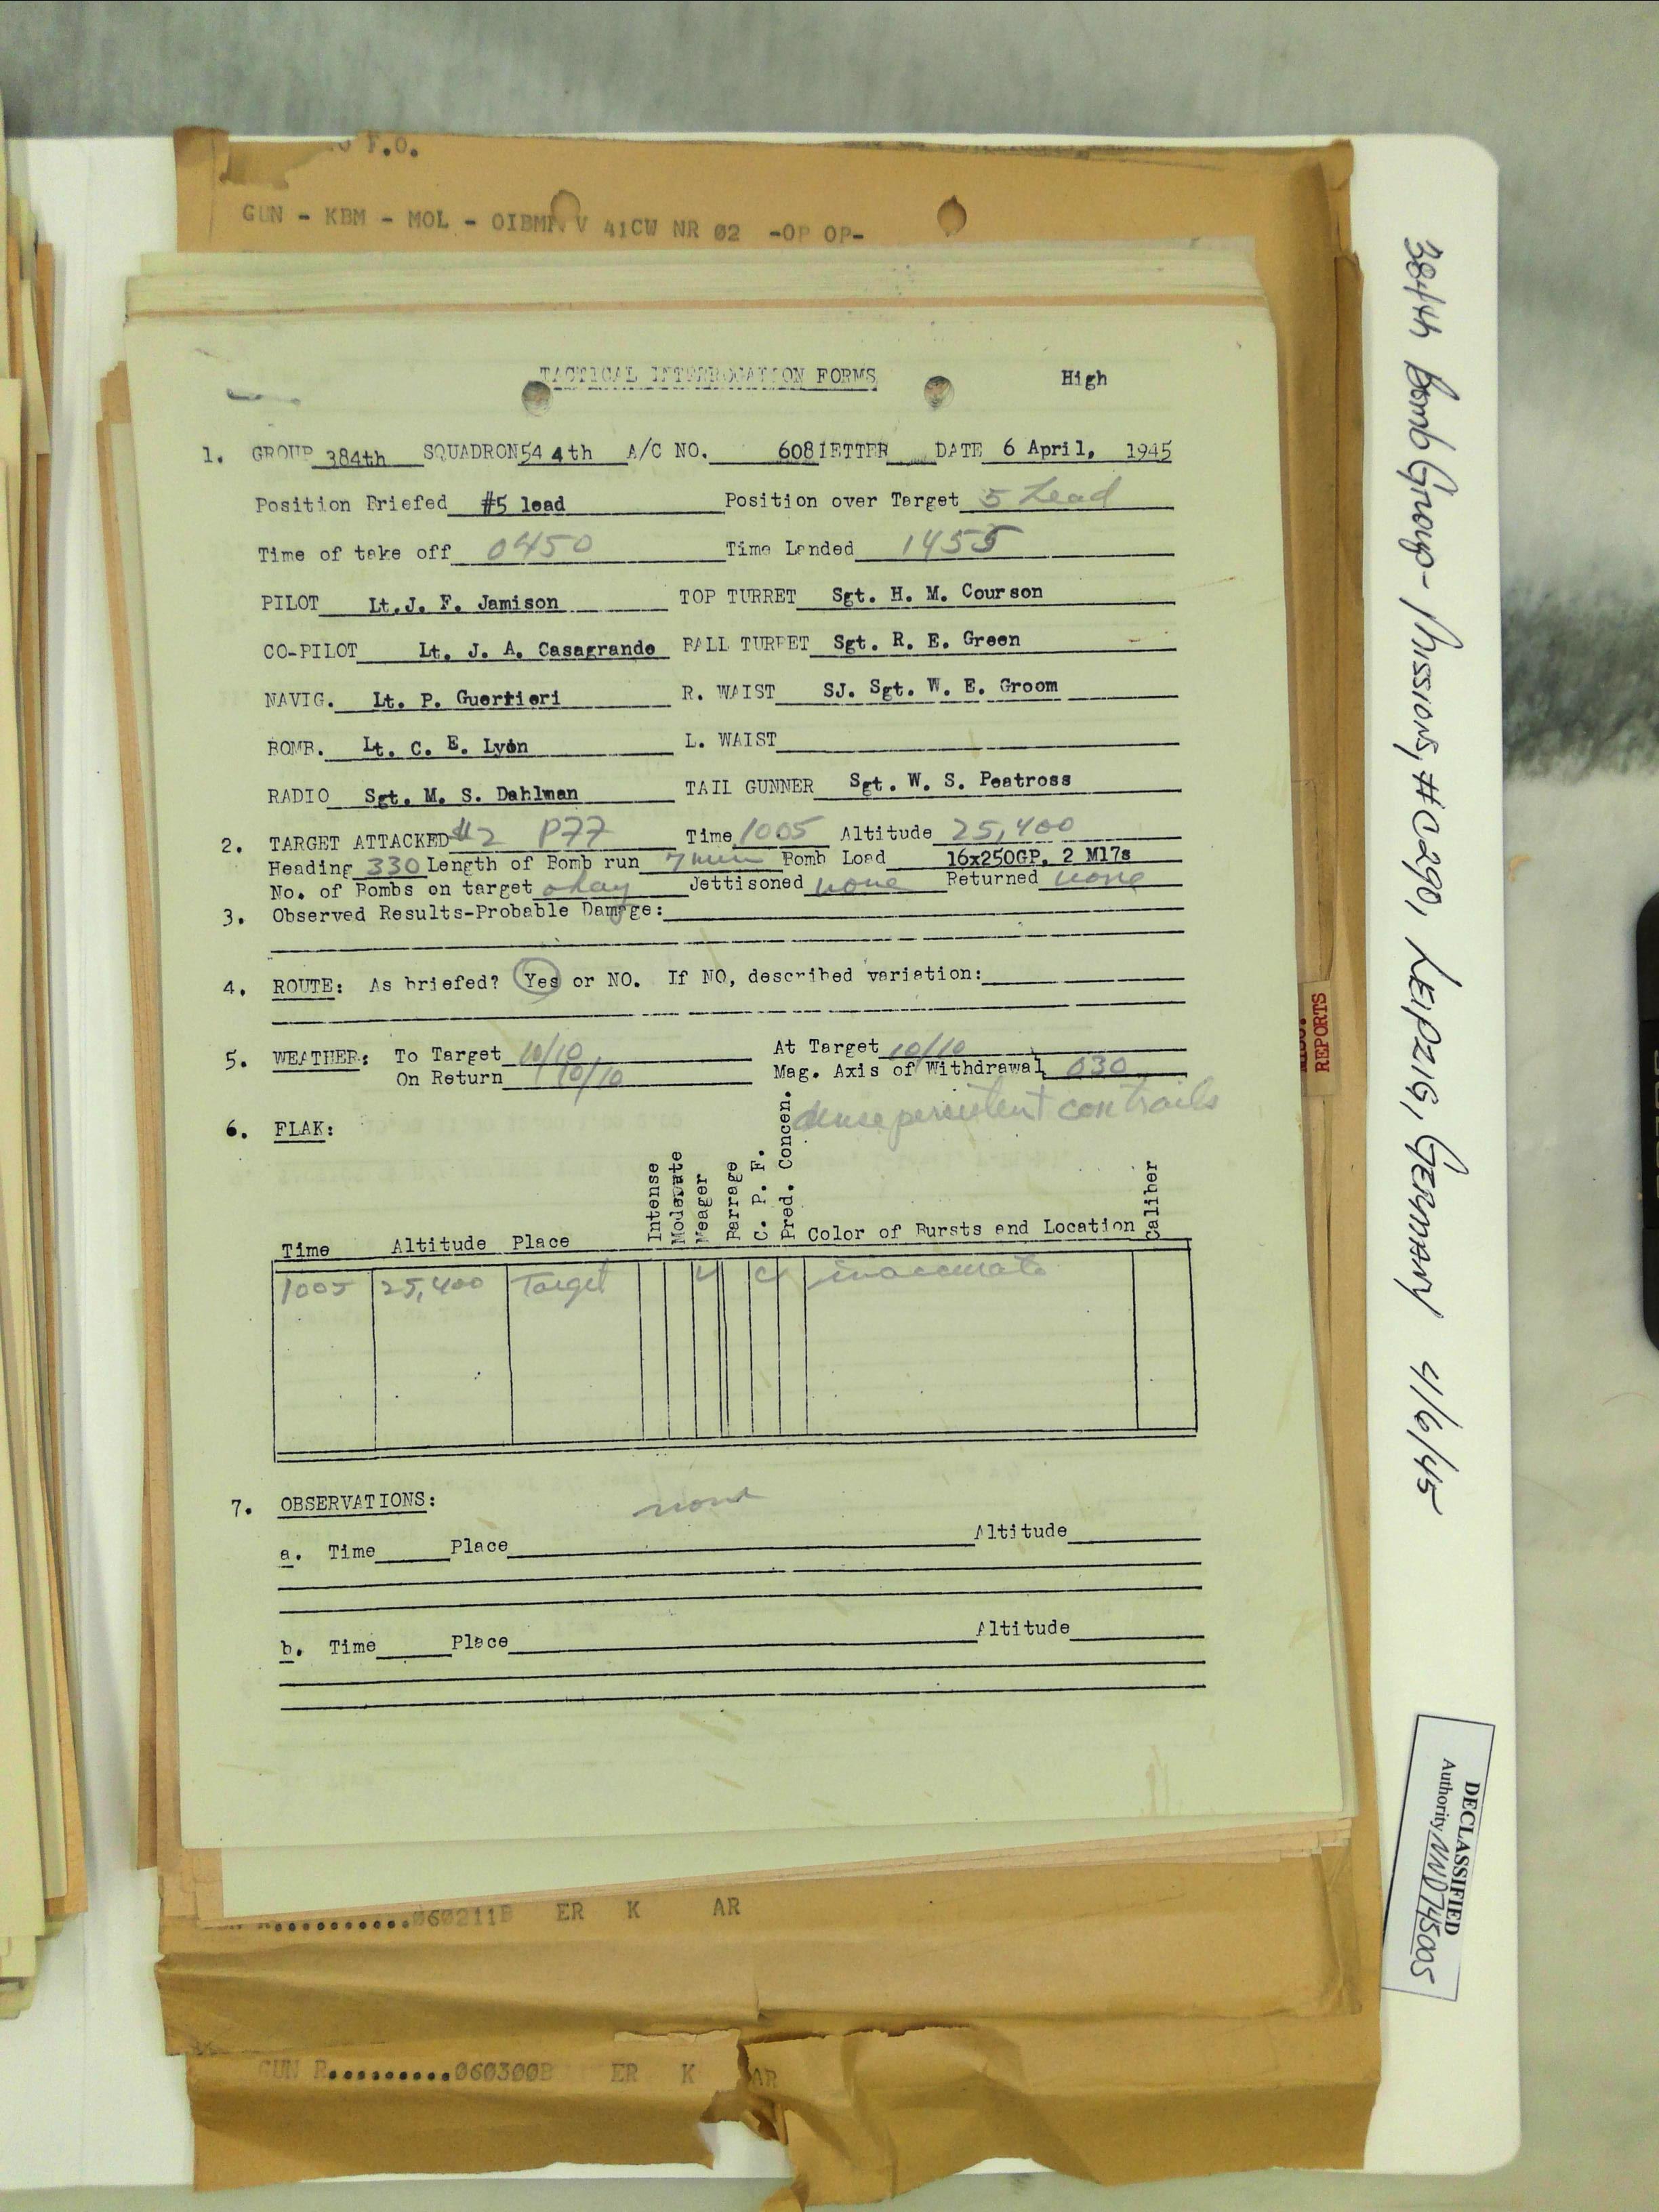 F.O.
GUN - KBM - MOL - OIBMR V 41CW NR 02 -OP OP-
TACTICAL INTERROGATION FORMS High
1. GROUP 384th SQUADRON 544th A/C NO. 608 LETTER DATE 6 April, 1945
Position Briefed #5 lead Position over Target 5 Lead
Time of take off 0450 Time Landed 1455
PILOT Lt. J. F. Jamison TOP TURRET Sgt. H. M. Courson
CO-PILOT Lt. J. A. Casagrande BALL TURRET Sgt. R. E. Green
NAVIG. Lt. P. Guerrieri R. WAIST SJ. Sgt. W. E. Groom
BOMB. Lt. C. E. Lyon L. WAIST
RADIO Sgt. M. S. Dahlman TAIL GUNNER Sgt. W. S. Peatross
2. TARGET ATTACKED #2 P77 Time 1005 Altitude 25,400
Heading 330 Length of Bomb run 7 min Bomb Load 16x250GP, 2 M17s
No. of Bombs on target okay Jettisoned none Returned none
3. Observed Results-Probable Damage:
4. ROUTE: As briefed? Yes or NO. If NO, described variation:
5. WEATHER: To Target 10/10 At Target 10/10
On Return 10/10 Mag. Axis of Withdrawal 030
dense persistent contrails
6. FLAK:
Time Altitude Place Intense Moderate Meager Barrage C. P. F. Pred. Concen. Color of Bursts and Location Caliber
1005 25,400 Target inaccurate
7. OBSERVATIONS: none
a. Time Place Altitude
b. Time Place Altitude
060211B ER K AR
GUN R..........060300B ER K AR
REPORTS
384th Bomb Group - Missions, #0290, LEIPZIG, GERMANY 4/6/45
DECLASSIFIED
Authority NND745005